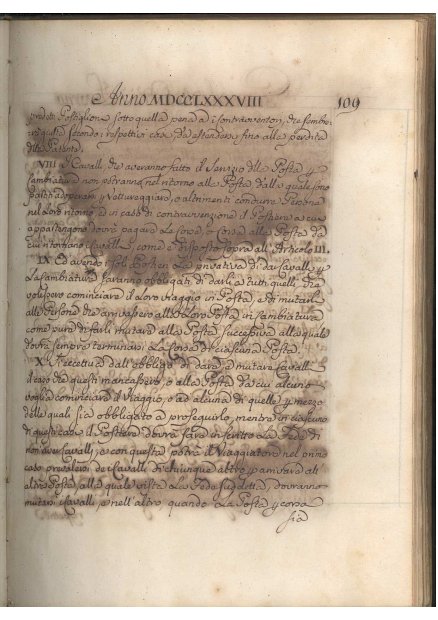 Anno MDCCLXXXVIII 109
predetti Postiglioni sotto quella pena a i contraventori, che sembre-
rà giusta secondo i rispettivi casi da estendersi sino alla perdita
della Patente.
VIII I Cavalli, che averanno fatto il servizio della Posta p
Cambiatura non potranno nel ritorno alla Posta dalla quale sono
partiti adoperarsi p Vettureggiare, o altrimenti condurre Persone
nel loro ritorno, ed in caso di contravvenzione il Postiere a cui
appartengono dovrà pagare la Corsa, o Corse alla Posta da
cui ritornano i Cavalli come è disposto sopra all'Articolo III.
IX Ed avendo i soli Postieri la privativa di dar Cavalli p
la Cambiatura saranno obbligati di darli a tutti quelli, che
volessero cominciare il loro viaggio in Posta, e di mutarli
alle Persone che arrivassero alla loro Posta in Cambiatura
come pure di farli mutare alla Posta successiva alla quale
dovrà sempre terminarsi la Corsa di ciascuna Posta.
X. Si eccettua dall'obbligo di dare, e mutare Cavalli
il caso che questi mancassero, o alla Posta da cui alcuno
voglia cominciare il Viaggio, o ad alcuna di quelle p mezzo
delle quali sia obbligato a proseguirlo, mentre in ciascuno
di questi casi il Postiere dovrà fare in scritto la Fede di
non aver Cavalli, e con questa potrà il Viaggiatore nel primo
caso prevalersi de i Cavalli di chiunque altro p arrivare all'
altra Posta, alla quale vista la Fede suddetta, dovranno
mutarsi i Cavalli, e nell'altro quando la Posta p corsa
sia